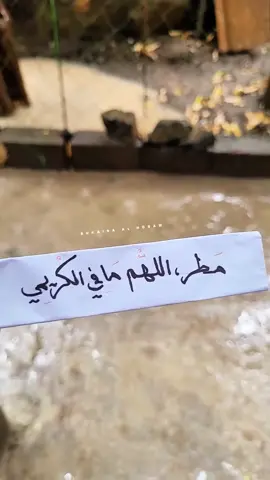 مَطر، اللهُم مَا في الكَريمي